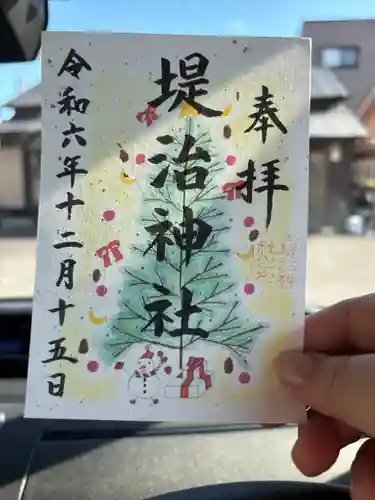 奉拝
堤治神社
令和六年十二月十五日